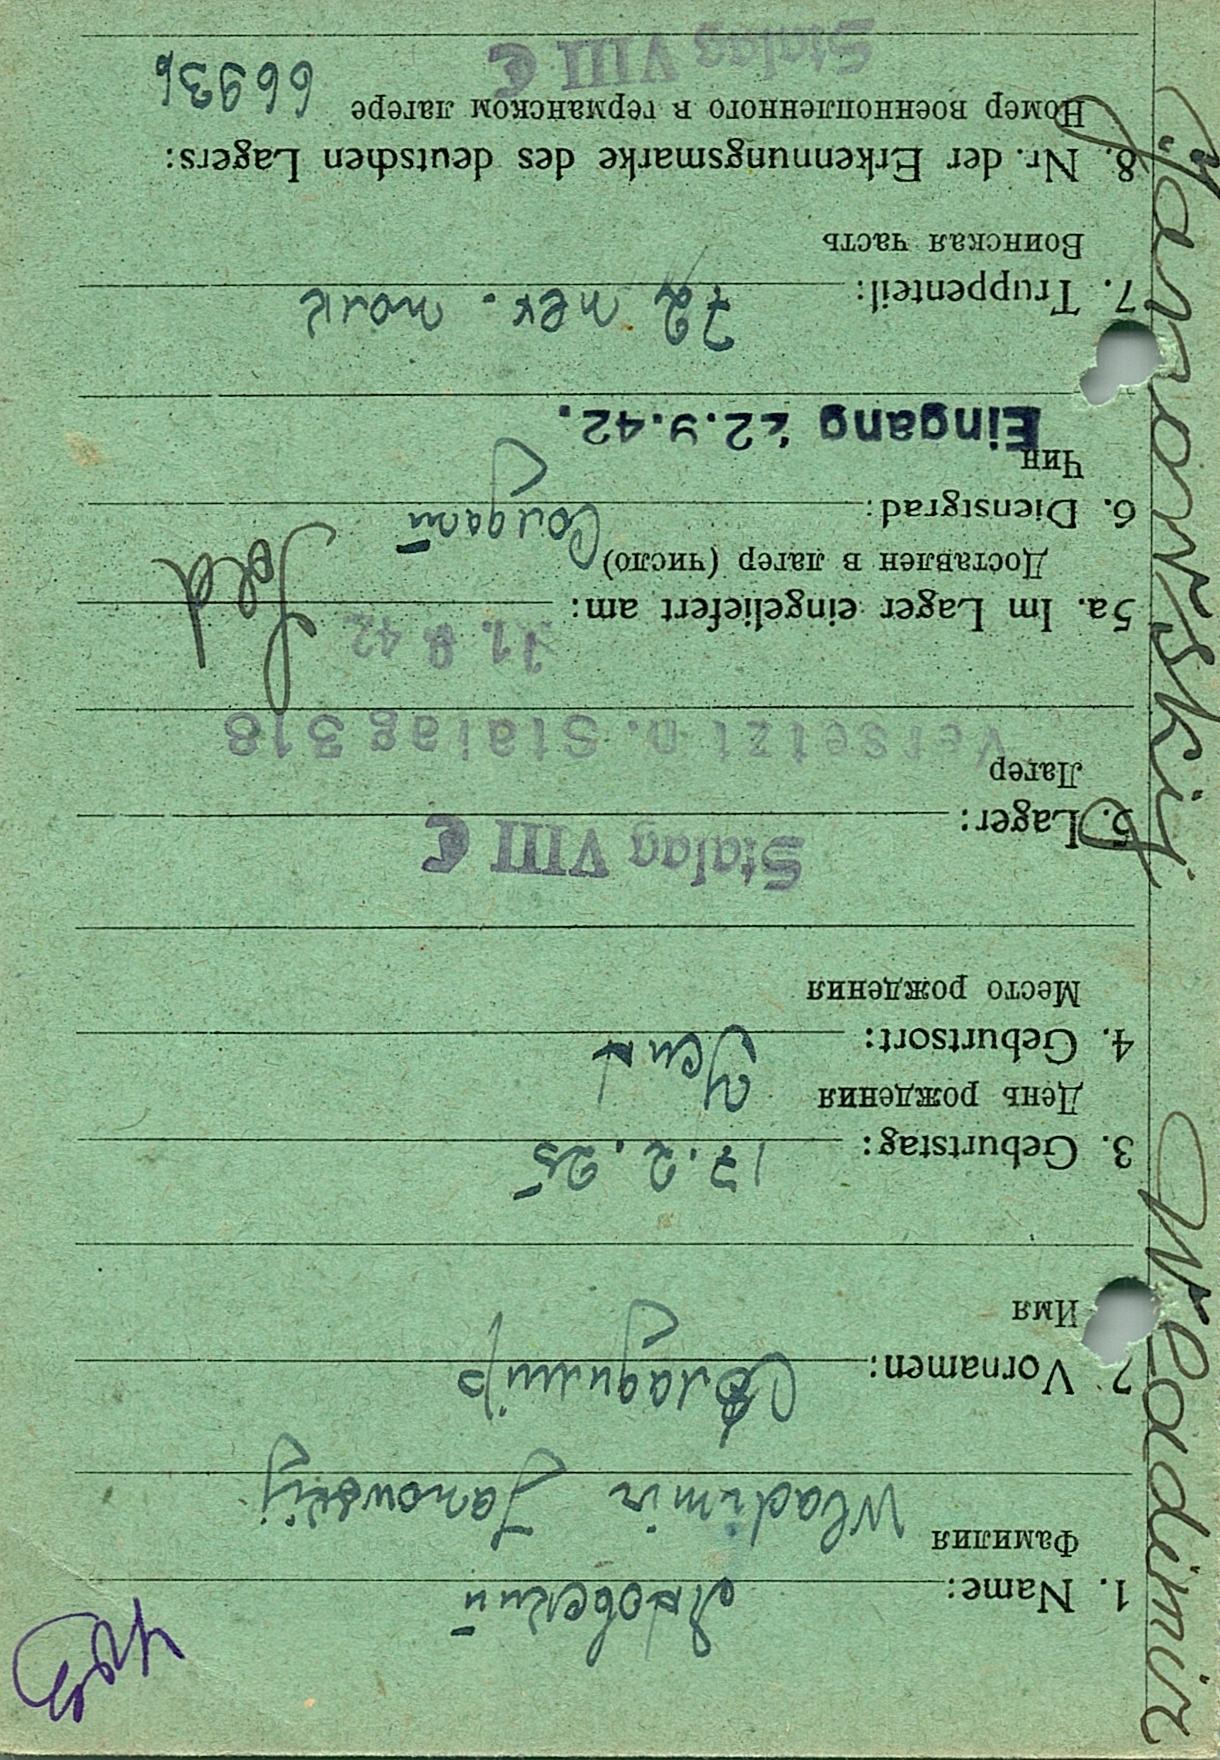 1. Name: Яновский
Фамилия Wladimir Janowskij
2. Vornamen: Владимир
Имя
3. Geburtstag: 17.2.25
День рождения
4. Geburtsort:
Место рождения
Stalag VIII C
5. Lager:
Лагер
Versetzt n. Stalag 318
11. 9 42
5a. Im Lager eingeliefert am:
Доставлен в лагер (число)
6. Dienstgrad: Солдат Sold
Чин
Eingang 22.9.42.
7. Truppenteil: 72 пех. полк
Воинская часть
8. Nr. der Erkennungsmarke des deutschen Lagers:
Номер военнопленного в германском лагере 66936
Stalag VIII C
Wladimir Janowskij